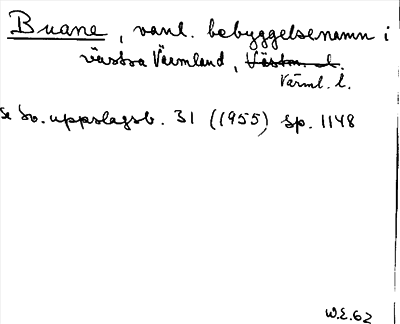 Buane, vanl. bebyggelsenamn i
västra Värmland, Västm. l.
Värml. l.
se Sv. uppslagsb. 31 (1955) sp. 1148
W.E. 62